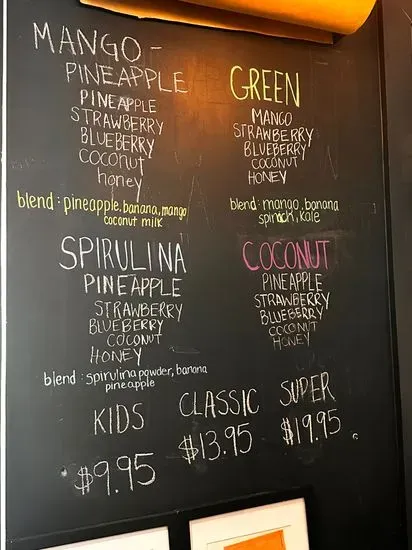 MANGO-
PINEAPPLE
PINEAPPLE
STRAWBERRY
BLUEBERRY
COCONUT
honey
blend: pineapple, banana, mango
coconut milk
GREEN
MANGO
STRAWBERRY
BLUEBERRY
COCONUT
HONEY
blend: mango, banana
spinach, kale
SPIRULINA
PINEAPPLE
STRAWBERRY
BLUEBERRY
COCONUT
HONEY
blend: spirulina powder, banana
pineapple
COCONUT
PINEAPPLE
STRAWBERRY
BLUEBERRY
COCONUT
HONEY
KIDS
$9.95
CLASSIC
$13.95
SUPER
$19.95